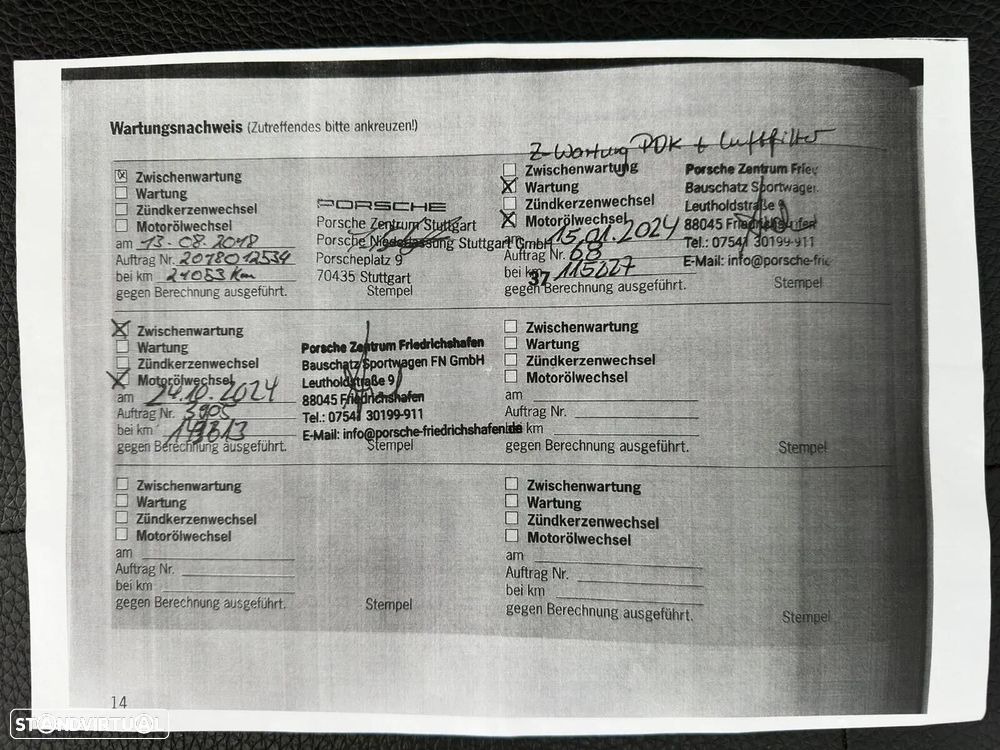 Wartungsnachweis (Zutreffendes bitte ankreuzen!)
Zwischenwartung
Wartung
Zündkerzenwechsel
Motorölwechsel
am 13.08.2018
Auftrag Nr. 2018012534
bei km 21053 Km
gegen Berechnung ausgeführt.
PORSCHE
Porsche Zentrum Stuttgart
Porsche Niederlassung Stuttgart GmbH
Porscheplatz 9
70435 Stuttgart
Stempel
Z-Wartung PDK + Luftfilter
Zwischenwartung
Wartung
Zündkerzenwechsel
Motorölwechsel
am 15.01.2024
Auftrag Nr. 68
bei km
37
gegen Berechnung ausgeführt.
Porsche Zentrum
Bauschatz Sportwagen
Leutholdstraße 9
88045 Friedrichshafen
Tel.: 07541 30199-911
E-Mail: info@porsche-frie
Stempel
Zwischenwartung
Wartung
Zündkerzenwechsel
Motorölwechsel
am 24.10.2024
Auftrag Nr.
bei km
gegen Berechnung ausgeführt.
Porsche Zentrum Friedrichshafen
Bauschatz Sportwagen FN GmbH
Leutholdstraße 9
88045 Friedrichshafen
Tel.: 07541 30199-911
E-Mail: info@porsche-friedrichshafen.de
Stempel
Zwischenwartung
Wartung
Zündkerzenwechsel
Motorölwechsel
am
Auftrag Nr.
bei km
gegen Berechnung ausgeführt.
Stempel
Zwischenwartung
Wartung
Zündkerzenwechsel
Motorölwechsel
am
Auftrag Nr.
bei km
gegen Berechnung ausgeführt.
Stempel
Zwischenwartung
Wartung
Zündkerzenwechsel
Motorölwechsel
am
Auftrag Nr.
bei km
gegen Berechnung ausgeführt.
Stempel
14
STANDVIRTUAL